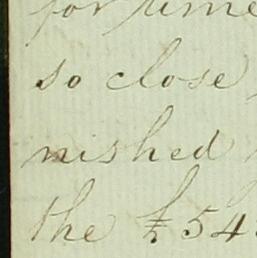 for time
so close
nished
the £54